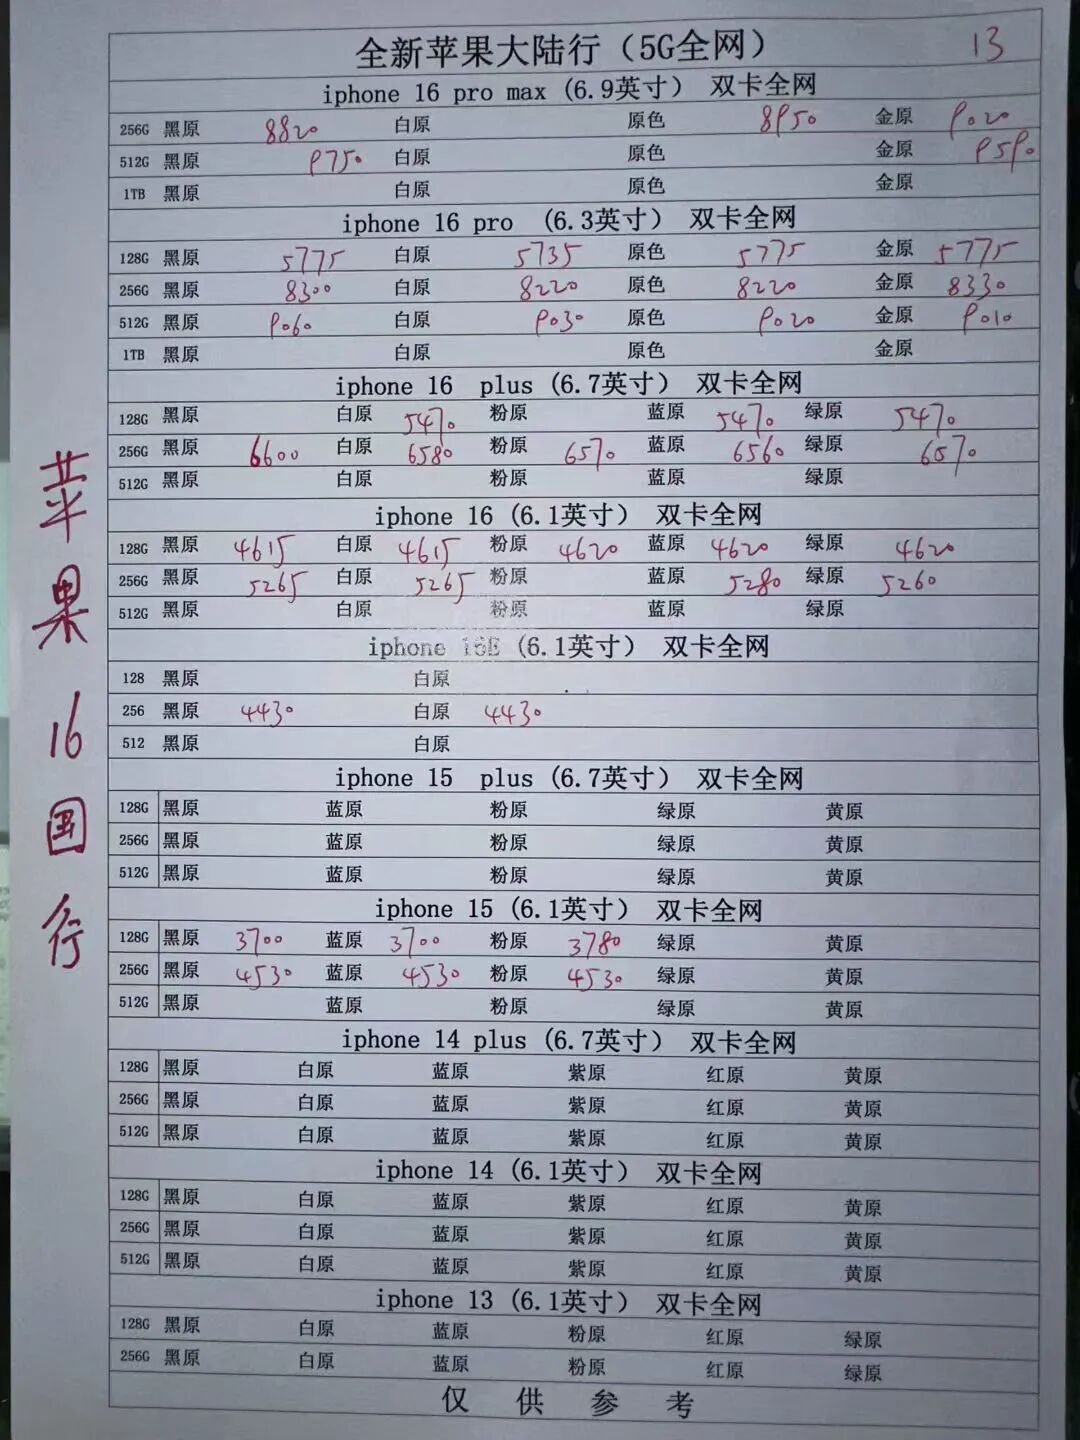 全新苹果大陆行（5G全网） 13
iphone 16 pro max (6.9英寸） 双卡全网
256G 黑原 8820 白原 原色 8950 金原 9020
512G 黑原 9750 白原 原色 金原 9590
1TB 黑原 白原 原色 金原
iphone 16 pro （6.3英寸） 双卡全网
128G 黑原 5775 白原 5735 原色 5775 金原 5775
256G 黑原 8300 白原 8220 原色 8220 金原 8330
512G 黑原 9060 白原 9030 原色 9020 金原 9010
1TB 黑原 白原 原色 金原
iphone 16 plus (6.7英寸） 双卡全网
128G 黑原 白原 5470 粉原 蓝原 5470 绿原 5470
256G 黑原 6600 白原 6580 粉原 6570 蓝原 6560 绿原 6570
512G 黑原 白原 粉原 蓝原 绿原
iphone 16 (6.1英寸） 双卡全网
128G 黑原 4615 白原 4615 粉原 4620 蓝原 4620 绿原 4620
256G 黑原 5265 白原 5265 粉原 蓝原 5280 绿原 5260
512G 黑原 白原 粉原 蓝原 绿原
iphone 16E (6.1英寸） 双卡全网
128 黑原 白原
256 黑原 4430 白原 4430
512 黑原 白原
iphone 15 plus (6.7英寸） 双卡全网
128G 黑原 蓝原 粉原 绿原 黄原
256G 黑原 蓝原 粉原 绿原 黄原
512G 黑原 蓝原 粉原 绿原 黄原
iphone 15 (6.1英寸） 双卡全网
128G 黑原 3700 蓝原 3700 粉原 3780 绿原 黄原
256G 黑原 4530 蓝原 4530 粉原 4530 绿原 黄原
512G 黑原 蓝原 粉原 绿原 黄原
iphone 14 plus (6.7英寸） 双卡全网
128G 黑原 白原 蓝原 紫原 红原 黄原
256G 黑原 白原 蓝原 紫原 红原 黄原
512G 黑原 白原 蓝原 紫原 红原 黄原
iphone 14 (6.1英寸） 双卡全网
128G 黑原 白原 蓝原 紫原 红原 黄原
256G 黑原 白原 蓝原 紫原 红原 黄原
512G 黑原 白原 蓝原 紫原 红原 黄原
iphone 13 (6.1英寸） 双卡全网
128G 黑原 白原 蓝原 粉原 红原 绿原
256G 黑原 白原 蓝原 粉原 红原 绿原
仅供参考
苹果16国行